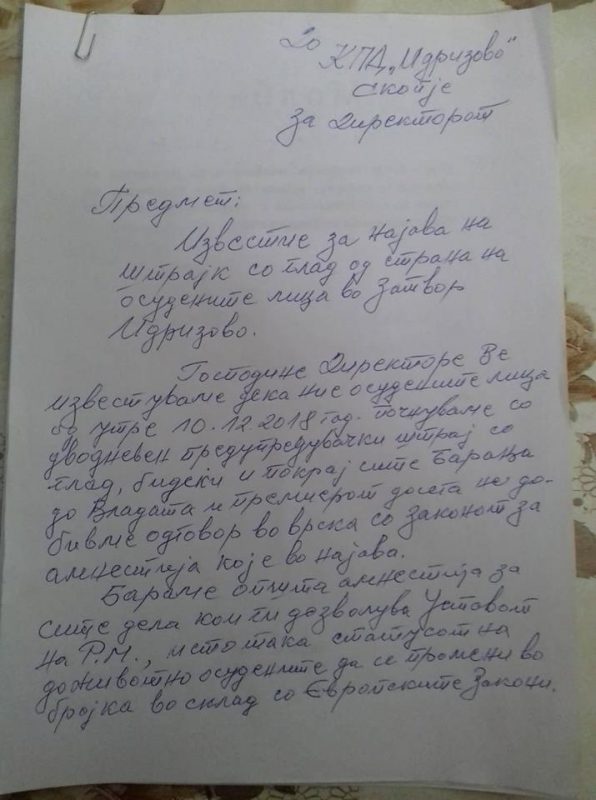 До
КПД „Идризово"
Скопје
За Директорот
Предмет:
Известие за најава на
штрајк со глад од страна на
осудените лица во Затвор
Идризово.
Господине Директоре Ве
известуваме дека ние осудените лица
од утре 10.12.2018 год. почнуваме со
дводневен предупредувачки штрај со
глад, бидеки и покрај сите барања
до Владата и премиерот досега не до-
бивме одговор во врска со законот за
амнестија кој е во најава.
Бараме општа амнестија за
сите дела кои ги дозволува Уставот
на Р.М., исто така статусот на
доживотно осудените да се промени во
бројка во склад со Европските Закони.